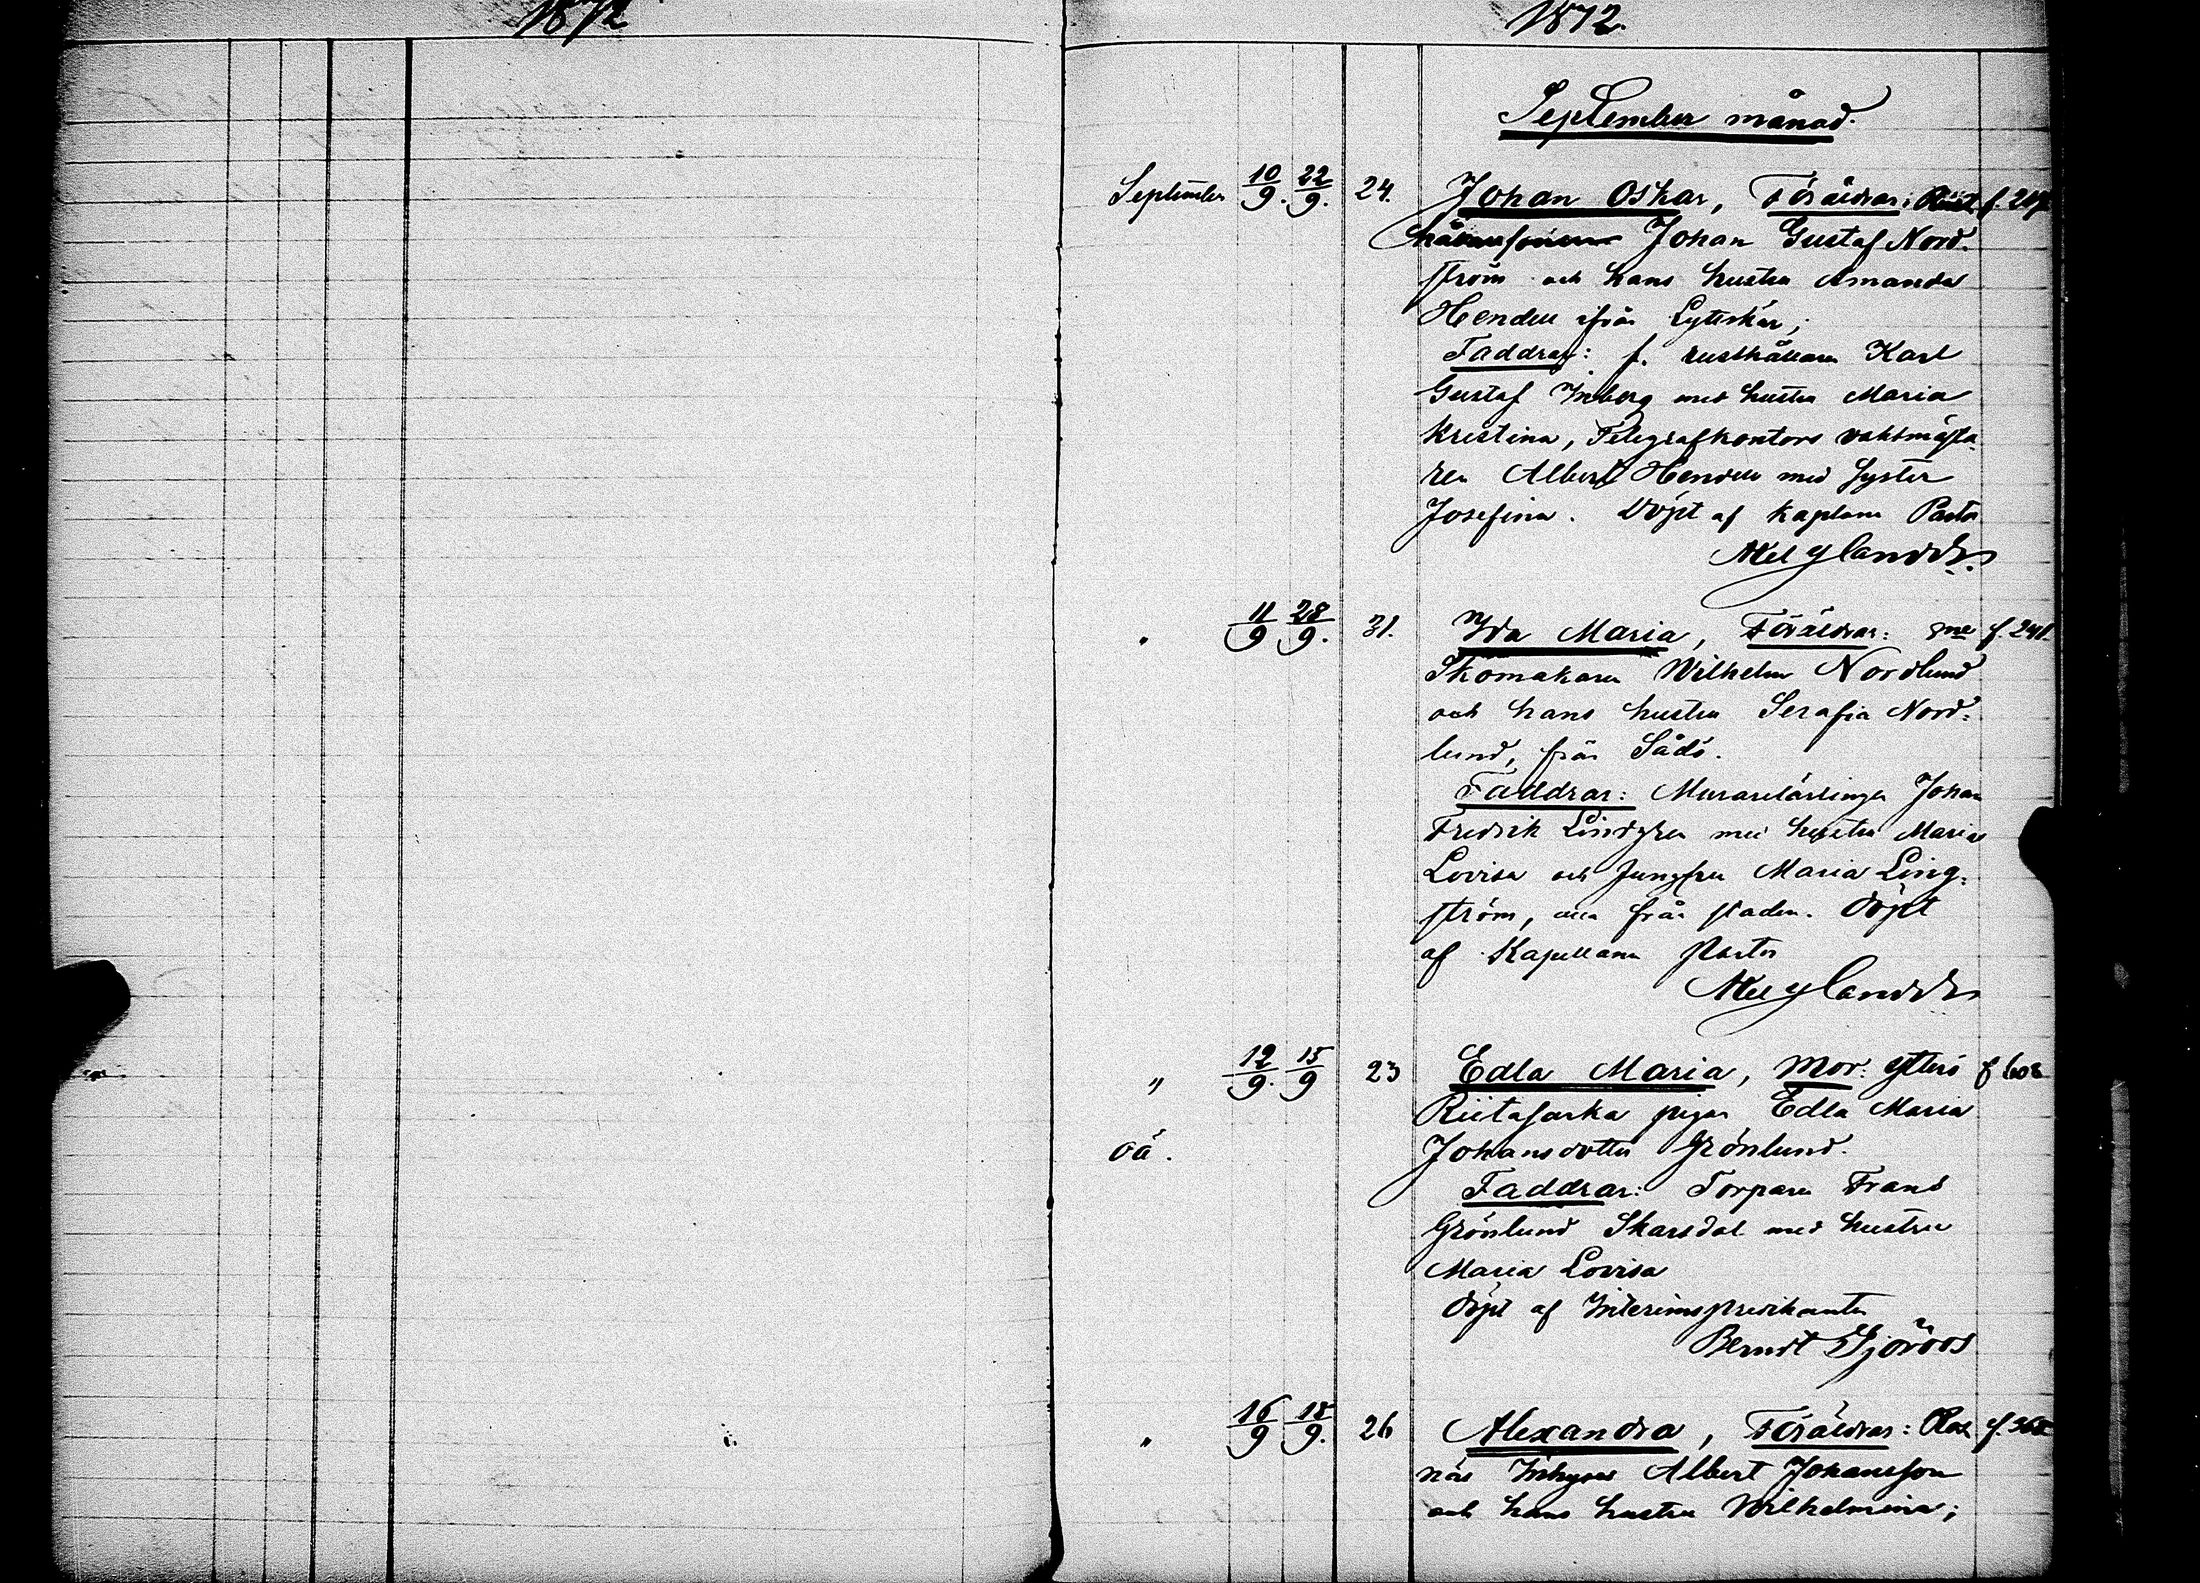 1872
1872.
September månad.
September 10/9. 22/9. 24. Johan Oskar, Föräldrar:
Johan Gustaf Nord-
ström och hans hustru Amanda
Hendell ifrån Lyteskär;
Faddrar: f. rusthållaren Karl
Gustaf Inberg med hustru Maria
Kristina, Telegrafkontors vaktmästa-
ren Albert Hendell med syster
Josefina. Döpt af kaplanen Pastor
Axel Ylander.
" 11/9 28/9. 31. Ida Maria, Föräldrar: f. 241.
Skomakaren Wilhelm Nordlund
och hans hustru Serafia Nord-
lund, från Sådö.
Faddrar: Murarelärlingen Johan
Fredrik Lindgren med hustru Maria
Lovisa och Jungfru Maria Ling-
ström, alla från staden. Döpt
af Kapellanen Pastor
Axel Ylander
" 12/9. 15/9 23 Edla Maria, Mor: Ytterö f
oä. Riitasarka pigan Edla Maria
Johansdotter Grönlund.
Faddrar: Torparen Frans
Grönlund Skarsdal med hustru
Maria Lovisa
Döpt af Interimspredikanten
Berndt Sjöroos
" 16/9 18/9. 26 Alexandra, Föräldrar:
näs Inhyses Albert Johansson
och hans hustru Wilhelmina;